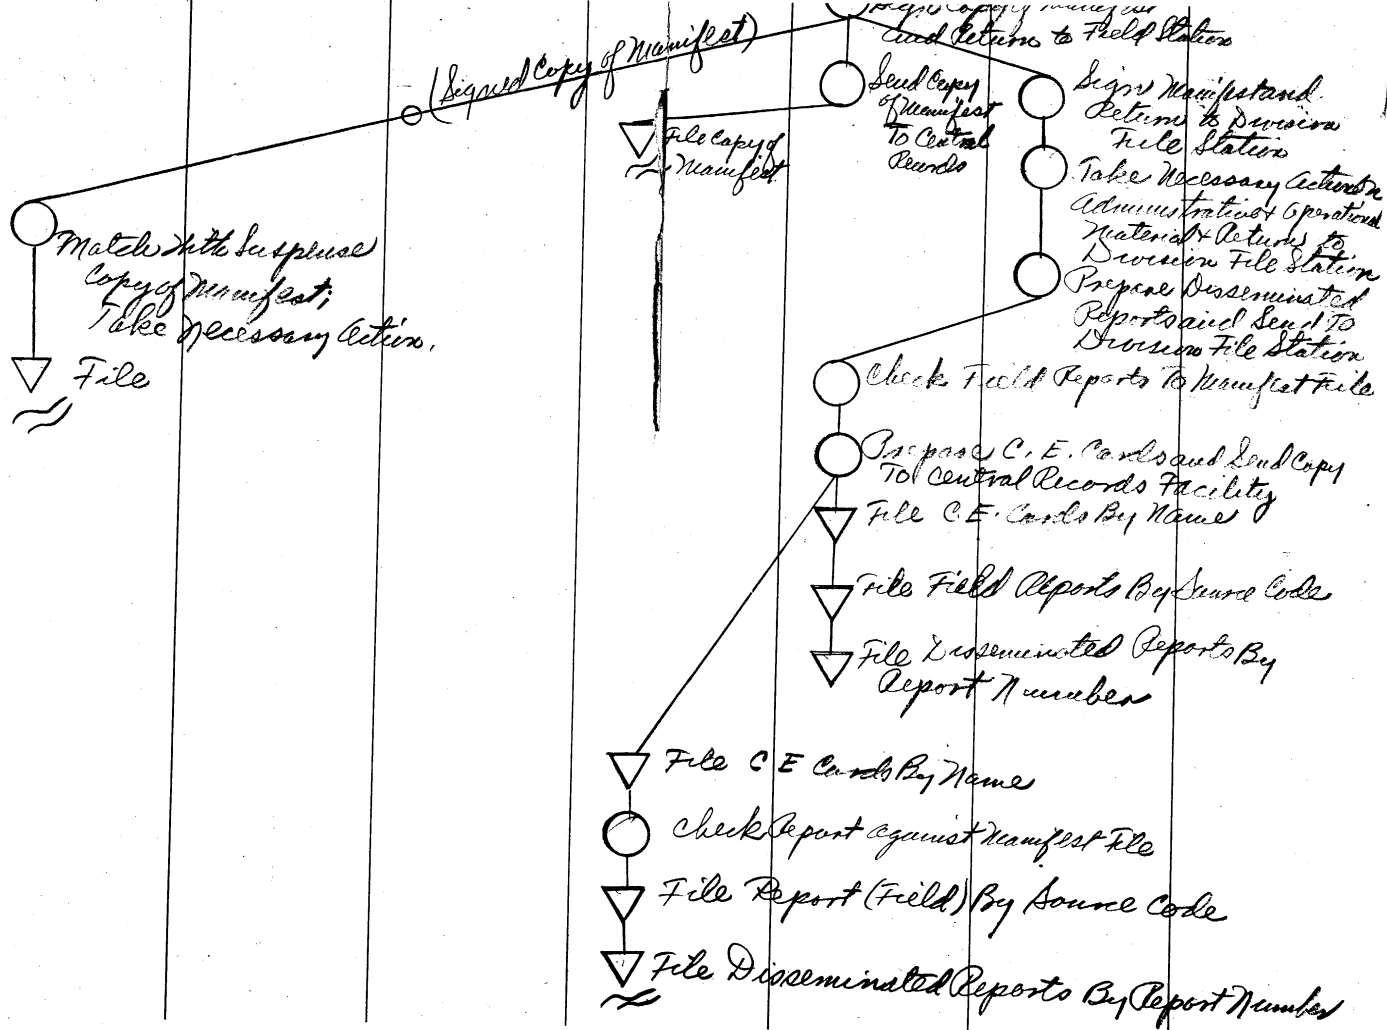 Sign Copy of Manifest
and Return to Field Station
(Signed Copy of Manifest)
Send Copy
of Manifest
To Central
Records
File Copy of
Manifest
Sign Manifest and
Return to Division
File Station
Take Necessary Action on
Administrative & Operational
Material & Return to
Division File Station
Prepare Disseminated
Reports and Send To
Division File Station
Match with Suspense
Copy of Manifest;
Take Necessary Action.
File
Check Field Reports To Manifest File
Prepare C. E. Cards and Send Copy
To Central Records Facility
File C.E. Cards By Name
File Field Reports By Source Code
File Disseminated Reports By
Report Number
File C E Cards By Name
Check Report against Manifest File
File Report (Field) By Source Code
File Disseminated Reports By Report Number